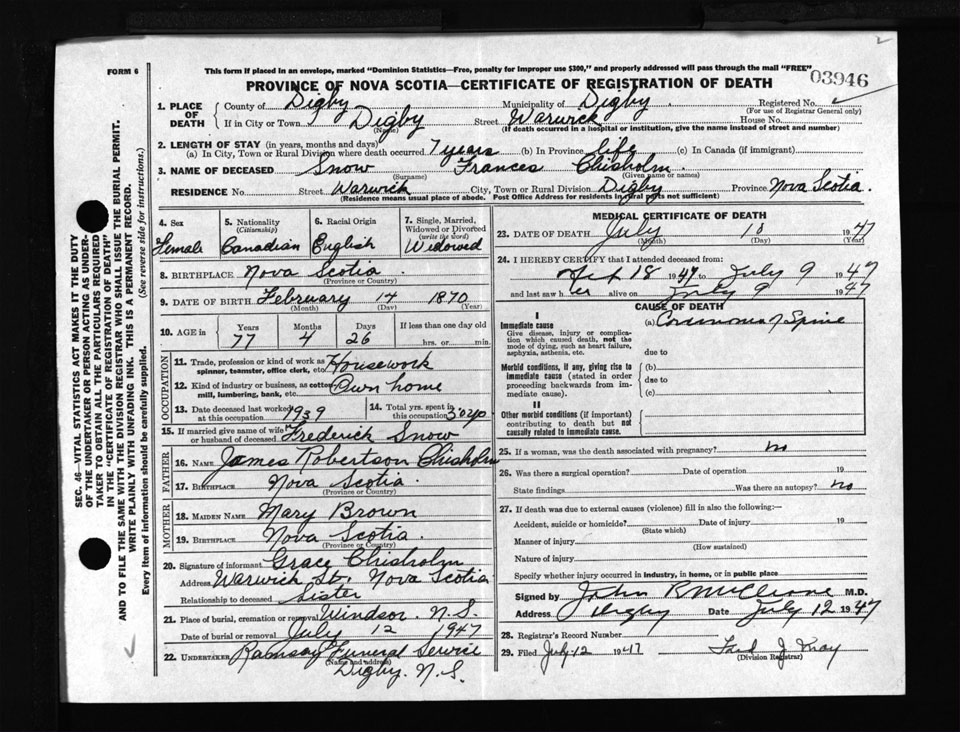 2
FORM 6
This form if placed in an envelope, marked "Dominion Statistics—Free, penalty for improper use $300," and properly addressed will pass through the mail "FREE"
03946
PROVINCE OF NOVA SCOTIA—CERTIFICATE OF REGISTRATION OF DEATH
1. PLACE OF DEATH
County of Digby Municipality of Digby Registered No.
(For use of Registrar General only)
If in City or Town Digby Street Warwick House No.
(Name) (If death occurred in a hospital or institution, give the name instead of street and number)
2. LENGTH OF STAY (in years, months and days)
(a) In City, Town or Rural Division where death occurred 7 years (b) In Province life (c) In Canada (if immigrant)
3. NAME OF DECEASED Snow Frances Chisholm
(Surname) (Given name or names)
RESIDENCE No. Street Warwick City, Town or Rural Division Digby Province Nova Scotia.
(Residence means usual place of abode. Post Office Address for residents in rural parts not sufficient)
4. Sex
Female
5. Nationality
(Citizenship)
Canadian
6. Racial Origin
English
7. Single, Married, Widowed or Divorced
(write the word)
Widowed
8. BIRTHPLACE Nova Scotia.
(Province or Country)
9. DATE OF BIRTH February 14 1870
(Month) (Day) (Year)
10. AGE in
Years Months Days If less than one day old
77 4 26 hrs. or min.
OCCUPATION
11. Trade, profession or kind of work as spinner, teamster, office clerk, etc. Housework
12. Kind of industry or business, as cotton mill, lumbering, bank, etc. Own home
13. Date deceased last worked at this occupation 1939
14. Total yrs. spent in this occupation 50 yrs
15. If married give name of wife or husband of deceased Frederick Snow
FATHER
16. NAME James Robertson Chisholm
17. Birthplace Nova Scotia.
(Province or Country)
MOTHER
18. MAIDEN NAME Mary Brown
19. BIRTHPLACE Nova Scotia.
(Province or Country)
20. Signature of informant Grace Chisholm
Address Warwick St. Nova Scotia
Relationship to deceased Sister
21. Place of burial, cremation or removal Windsor N.S.
Date of burial or removal July 12 1947
22. UNDERTAKER Ramsay Funeral Service
(Name and address)
Digby. N.S.
MEDICAL CERTIFICATE OF DEATH
23. DATE OF DEATH July 10 1947
(Month) (Day) (Year)
24. I HEREBY CERTIFY that I attended deceased from:
18 1947 to July 9 1947
and last saw her alive on July 9 1947
CAUSE OF DEATH
I
Immediate cause
Give disease, injury or complication which caused death, not the mode of dying, such as heart failure, asphyxia, asthenia, etc.
(a) Carcinoma of Spine
due to
Morbid conditions, if any, giving rise to immediate cause (stated in order proceeding backwards from immediate cause)
(b)
due to
(c)
II
Other morbid conditions (if important) contributing to death but not causally related to immediate cause.
25. If a woman, was the death associated with pregnancy? no
26. Was there a surgical operation? Date of operation 19
State findings Was there an autopsy? no
27. If death was due to external causes (violence) fill in also the following:—
Accident, suicide or homicide? Date of injury 19
(State which)
Manner of injury
(How sustained)
Nature of injury
Specify whether injury occurred in industry, in home, or in public place
Signed by John R McCleave M.D.
Address Digby Date July 12 1947
28. Registrar's Record Number
29. Filed July 12 1947
(Division Registrar)
SEC. 46—VITAL STATISTICS ACT MAKES IT THE DUTY
OF THE UNDERTAKER OR PERSON ACTING AS UNDER-
TAKER TO OBTAIN ALL THE PARTICULARS REQUIRED
IN THE "CERTIFICATE OF REGISTRATION OF DEATH"
AND TO FILE THE SAME WITH THE DIVISION REGISTRAR WHO SHALL ISSUE THE BURIAL PERMIT.
WRITE PLAINLY WITH UNFADING INK. THIS IS A PERMANENT RECORD.
Every item of information should be carefully supplied. (See reverse side for instructions.)